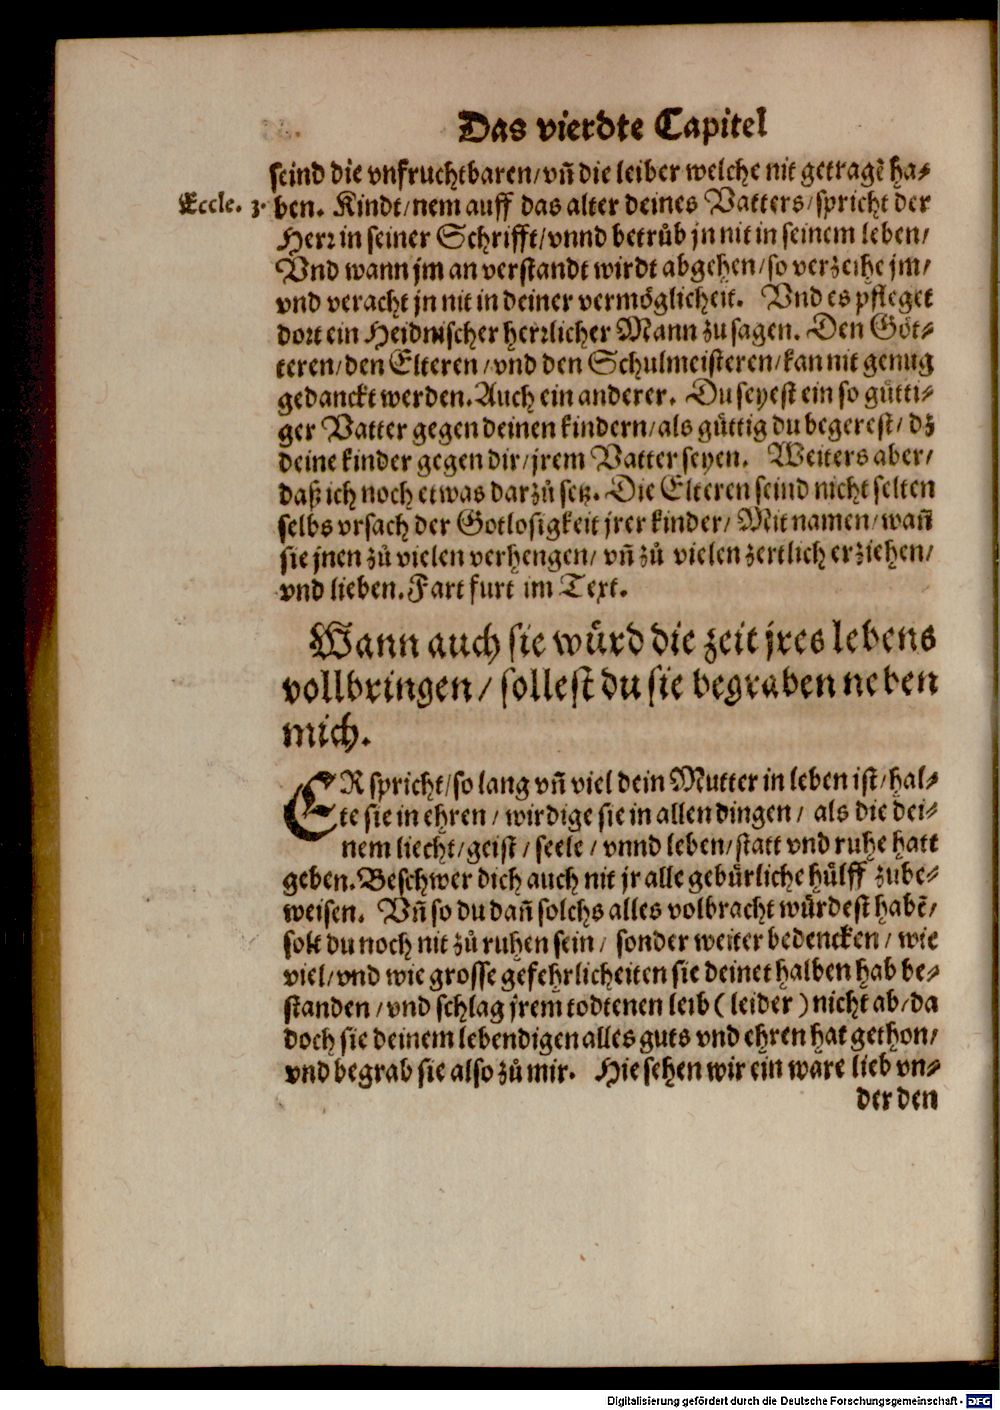 Das vierdte Capitel
seind die vnfruchtbaren/ vñ die leiber welche nit getragẽ ha⸗
Eccle. 3.
ben. Kindt/ nem auff das alter deines Vatters/ spricht der
Herr in seiner Schrifft/ vnnd betrůb jn nit in seinem leben/
Vnd wann jm an verstandt wirdt abgehen/ so verzeihe jm/
vnd veracht jn nit in deiner vermöglicheit. Vnd es pfleget
dort ein Heidnischer herrlicher Mann zu sagen. Den Göt⸗
teren/ den Elteren/ vnd den Schulmeisteren/ kan nit genug
gedanckt werden. Auch ein anderer. Du seyest ein so gütti⸗
ger Vatter gegen deinen kindern/ als güttig du begerest/ dz
deine kinder gegen dir/ jrem Vatter seyen. Weiters aber/
daß ich noch etwas darzů setz. Die Elteren seind nicht selten
selbs vrsach der Gotlosigkeit jrer kinder/ Mit namen/ wañ
sie jnen zů vielen verhengen/ vñ zů vielen zertlich erziehen/
vnd lieben. Fart furt im Text.
Wann auch sie würd die zeit jres lebens
vollbringen/ sollest du sie begraben neben
mich.
ER spricht/ so lang vñ viel dein Mutter in leben ist/ hal⸗
te sie in ehren/ wirdige sie in allen dingen/ als die dei⸗
nem liecht/ geist/ seele/ vnnd leben/ statt vnd ruhe hatt
geben. Beschwer dich auch nit jr alle gebürliche hülff zube⸗
weisen. Vñ so du dañ solchs alles volbracht würdest habẽ/
solt du noch nit zů ruhen sein/ sonder weiter bedencken/ wie
viel/ vnd wie grosse gefehrlicheiten sie deinethalben hab be⸗
standen/ vnd schlag jrem todtenen leib (leider) nicht ab/ da
doch sie deinem lebendigen alles guts vnd ehren hat gethon/
vnd begrab sie also zů mir. Hie sehen wir ein ware lieb vn⸗
der den
Digitalisierung gefördert durch die Deutsche Forschungsgemeinschaft - DFG